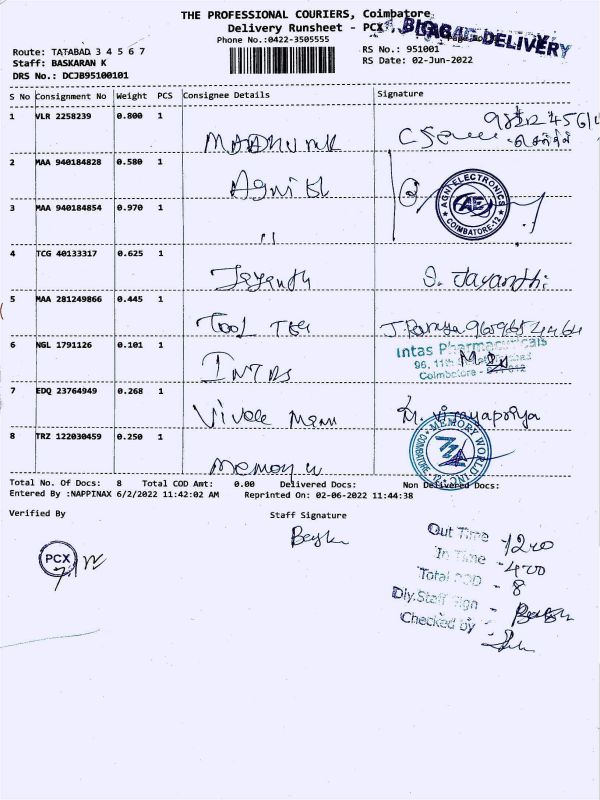 THE PROFESSIONAL COURIERS, Coimbatore
Delivery Runsheet - PCX
DELIVERY
Phone No.:0422-3505555
Route: TATABAD 3 4 5 6 7
RS No.: 951001
Staff: BASKARAN K
RS Date: 02-Jun-2022
DRS No.: DCJB95100101
S No Consignment No Weight PCS Consignee Details Signature
1 VLR 2258239 0.800 1
2 MAA 940184828 0.580 1
AGNI ELECTRONICS
AE
COIMBATORE-12
3 MAA 940184854 0.970 1 "
4 TCG 40133317 0.625 1 Jayanth S. Jayandhi
5 MAA 281249866 0.445 1 Tool
6 NGL 1791126 0.101 1 INTAS
Intas Pharmaceuticals
96, 11th
Coimbatore - 641 012
7 EDQ 23764949 0.268 1 Vivek M. Vijayapriya
8 TRZ 122030459 0.250 1 Memory w
MEMORY WORLD INC
COIMBATORE - 12
Total No. Of Docs: 8 Total COD Amt: 0.00 Delivered Docs: Non Delivered Docs:
Entered By :NAPPINAX 6/2/2022 11:42:02 AM Reprinted On: 02-06-2022 11:44:38
Verified By Staff Signature
PCX
Out Time - 1200
In Time - 400
Total COD - 8
Dly.Staff Sign -
Checked by -